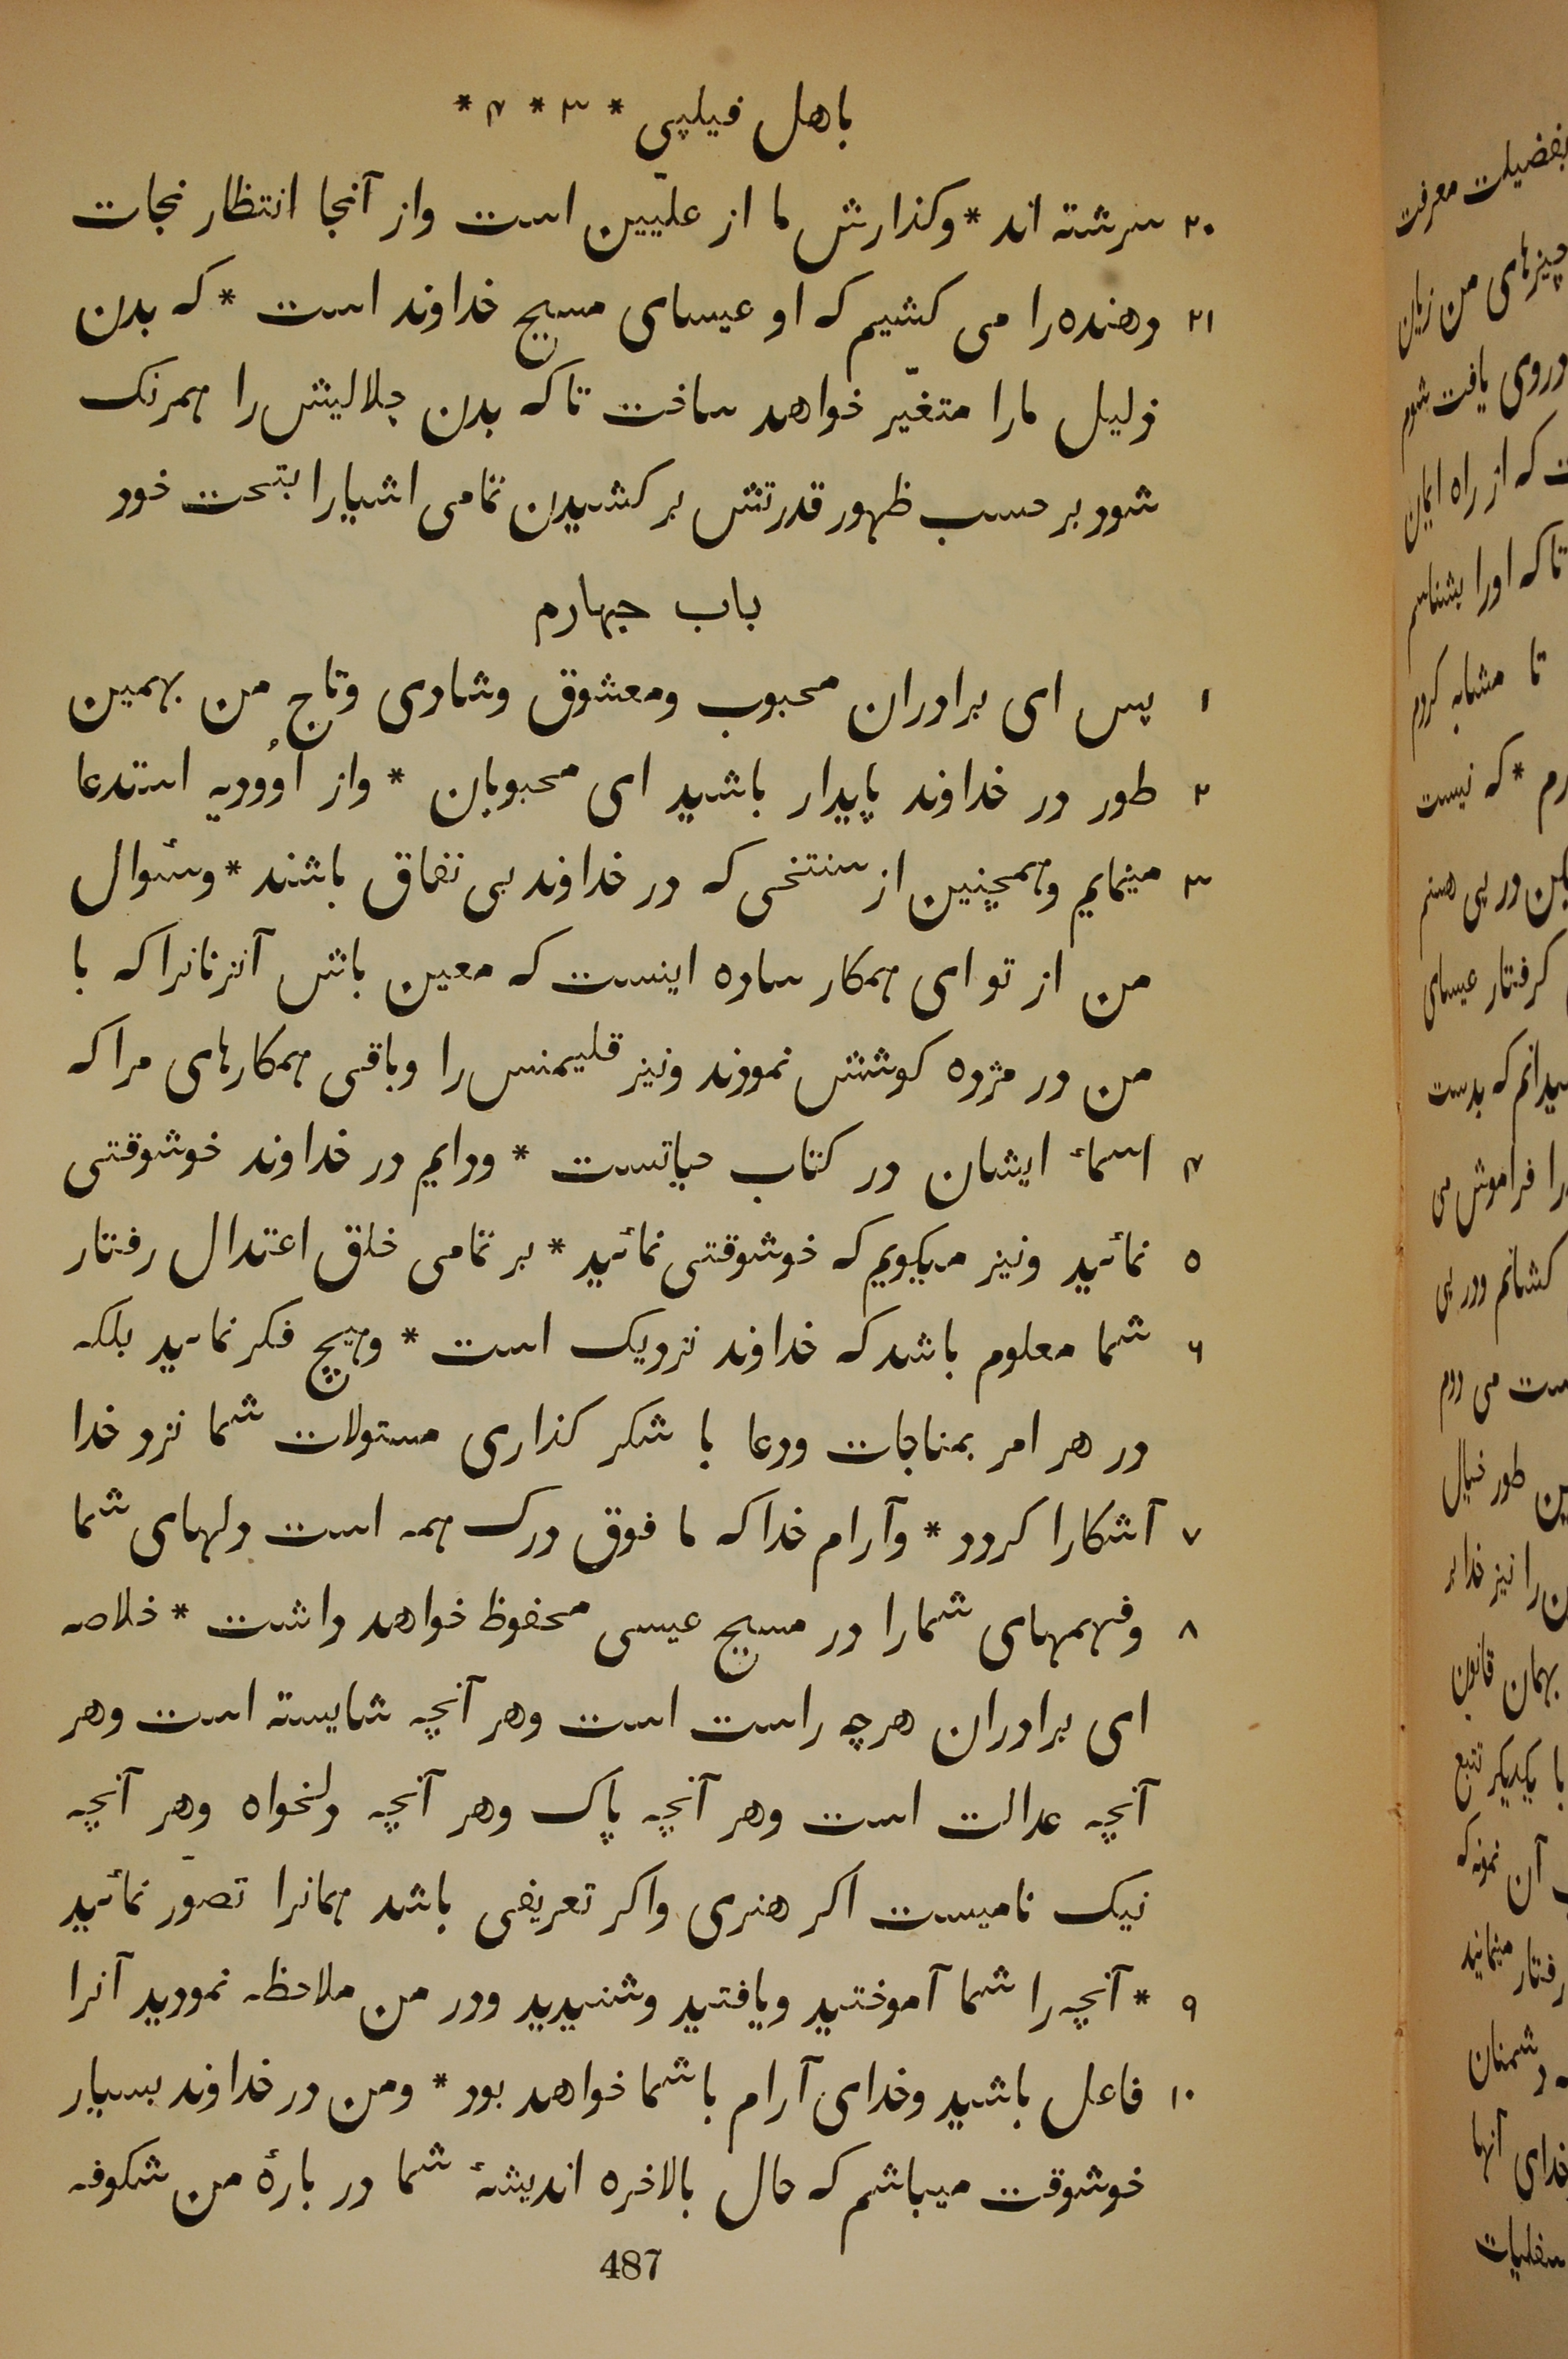 باهل فیلپی * ۳ * ۴ *
۲۰ سرشته اند * وکذارش ما از علّیین است واز آنجا انتظار نجات
۲۱ دهنده را می کشیم که او عیسای مسیح خداوند است * که بدن
ذلیل مارا متغیّر خواهد ساخت تا که بدن جلالیش را همرنک
شود بر حسب ظهور قدرتش بر کشیدن تمامی اشیارا بتحت خود
باب چهارم
۱ پس ای برادران محبوب ومعشوق وشادی وتاج من بهمین
۲ طور در خداوند پایدار باشید ای محبوبان * واز اُوودیه استدعا
۳ مینمایم وهمچنین از سنتخی که در خداوند بی نفاق باشند * وسٔوال
من از تو ای همکار ساده اینست که معین باش آنزنانرا که با
من در مژده کوشش نمودند ونیز قلیمنس را وباقی همکارهای مرا که
۴ اسماء ایشان در کتاب حیاتست * ودایم در خداوند خوشوقتی
۵ نمائید ونیز میکویم که خوشوقتی نمائید * بر تمامی خلق اعتدال رفتار
۶ شما معلوم باشد که خداوند نزدیک است * وهیچ فکر نمائید بلکه
در هر امر بمناجات ودعا با شکر کذاری مسئولات شما نزد خدا
۷ آشکارا کردد * وآرام خدا که ما فوق درک همه است دلهای شما
۸ وفهمهای شمارا در مسیح عیسی محفوظ خواهد داشت * خلاصه
ای برادران هرچه راست است وهر آنچه شایسته است وهر
آنچه عدالت است وهر آنچه پاک وهر آنچه دلخواه وهر آنچه
نیک نامیست اکر هنری واکر تعریفی باشد همانرا تصوّر نمائید
۹ * آنچه را شما آموختید ویافتید وشنیدید ودر من ملاحظه نمودید آنرا
۱۰ فاعل باشید وخدای آرام با شما خواهد بود * ومن در خداوند بسیار
خوشوقت میباشم که حال بالاخره اندیشهٔ شما در بارهٔ من شکوفه
487
بفضیلت معرفت
چیزهای من زیان
دروی یافت شوم
که از راه ایمان
تا که اورا بشناسم
تا مشابه کردم
* که نیست
در پی هستم
کرفتار عیسای
که بدست
را فراموش می
کشانم ودر پی
می دوم
طور خیال
را نیز خدا بر
بهمان قانون
با یکدیکر تتبع
آن نمونه که
رفتار مینمایند
دشمنان
خدای آنها
سفلیات